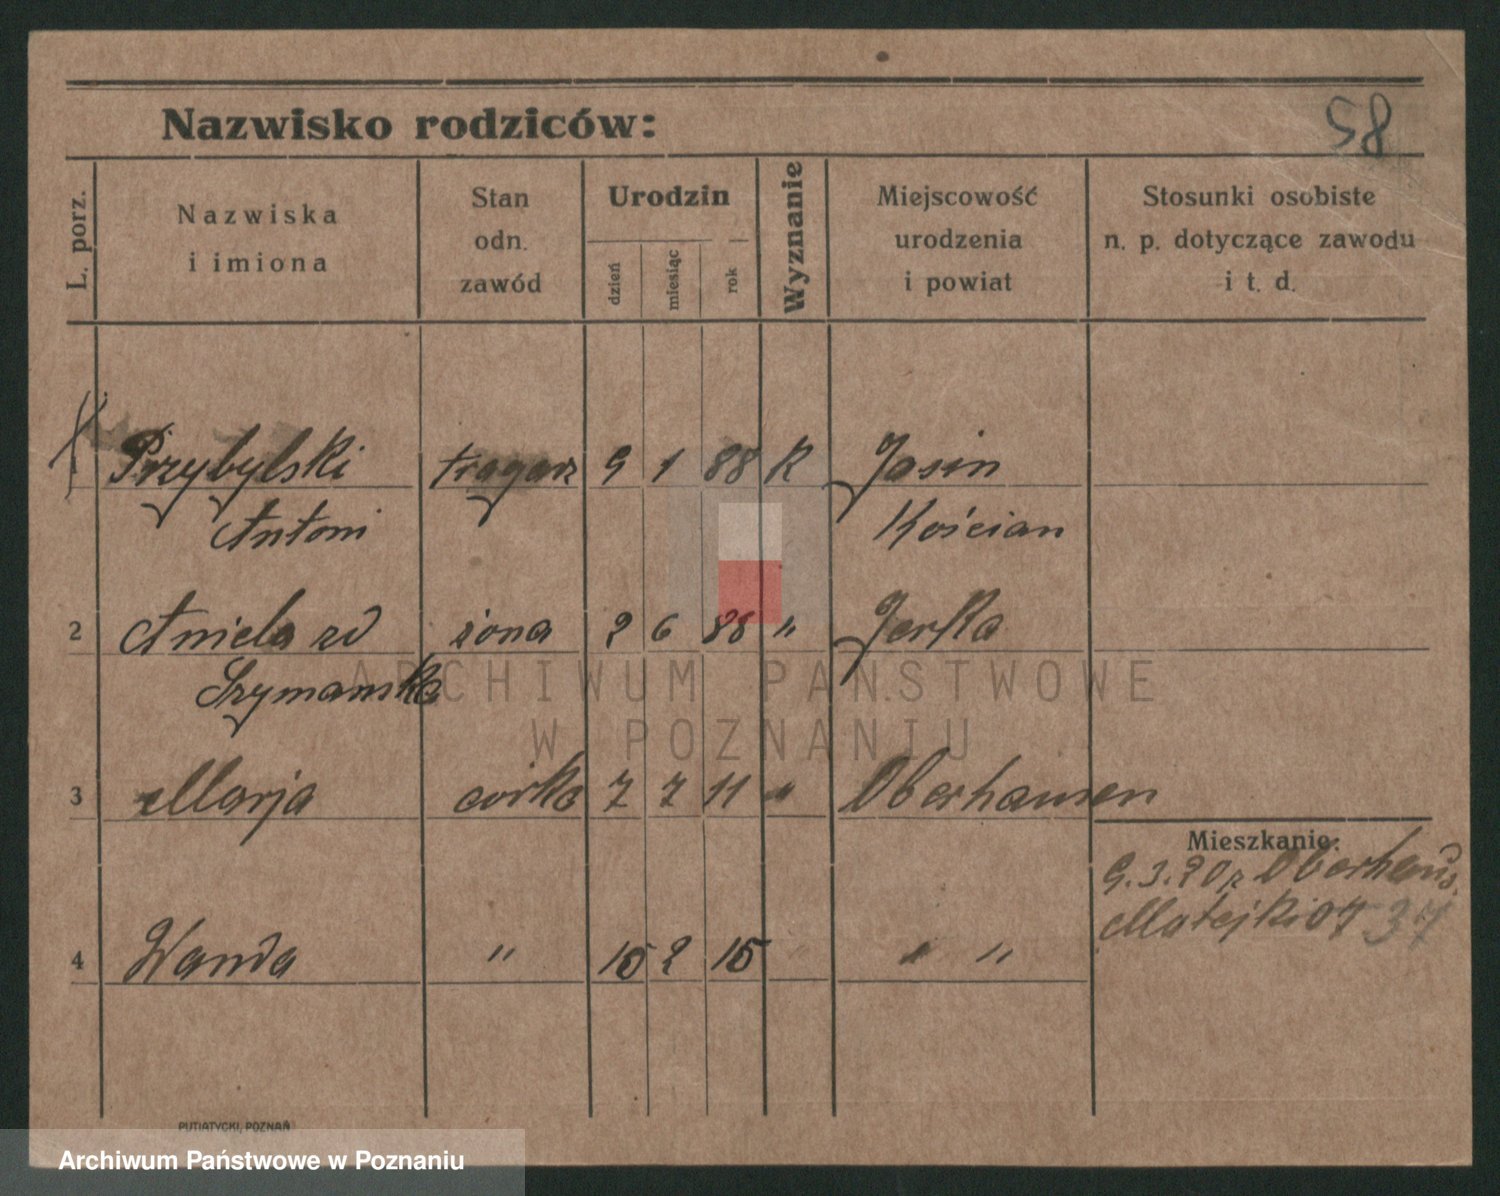 58
Nazwisko rodziców:
L. porz.
Nazwiska
i imiona
Stan
odn.
zawód
Urodzin
dzień
miesiąc
rok
Wyznanie
Miejscowość
urodzenia
i powiat
Stosunki osobiste
n. p. dotyczące zawodu
i t. d.
1 Przybylski tragarz 9 1 88 K Jasin
Antoni Kościan
2 Aniela zd żona 2 6 88 " Jerka
Szymańska
ARCHIWUM PAŃSTWOWE
W POZNANIU
3 Marja córka 7 7 11 " Oberhausen
Mieszkanie:
9.3.20 z Oberhaus.
Matejki 37
4 Wanda " 15 2 15 " "
PUTIATYCKI, POZNAŃ
Archiwum Państwowe w Poznaniu